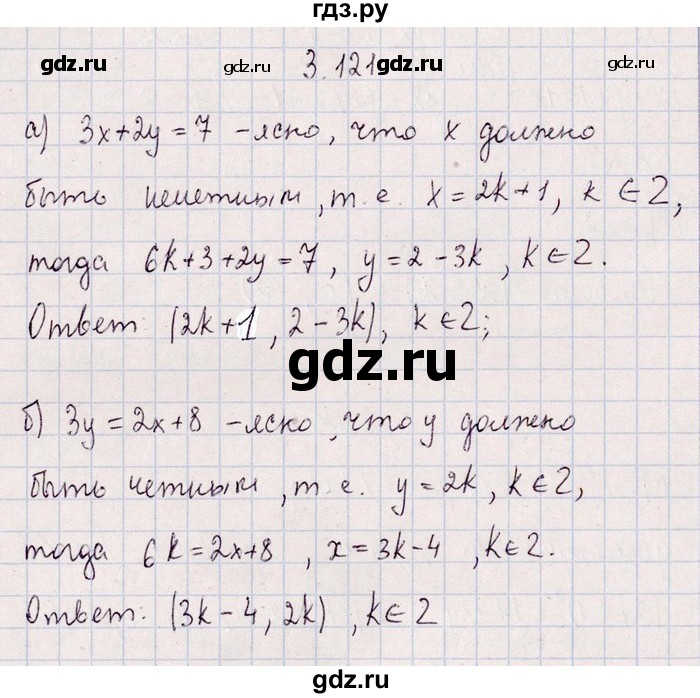 гдз.ру
gdz.ru gdz.ru 3.121 gdz.ru gdz.ru
а) 3x+2y=7 - ясно, что x должно
быть нечетным, т.е. x=2k+1, k∈Z,
тогда 6k+3+2y=7, y=2-3k, k∈Z.
Ответ (2k+1, 2-3k), k∈Z;
gdz.ru
б) 3y=2x+8 - ясно, что y должно
быть четным, т.е. y=2k, k∈Z,
тогда 6k=2x+8, x=3k-4, k∈Z.
Ответ: (3k-4, 2k), k∈Z
gdz.ru